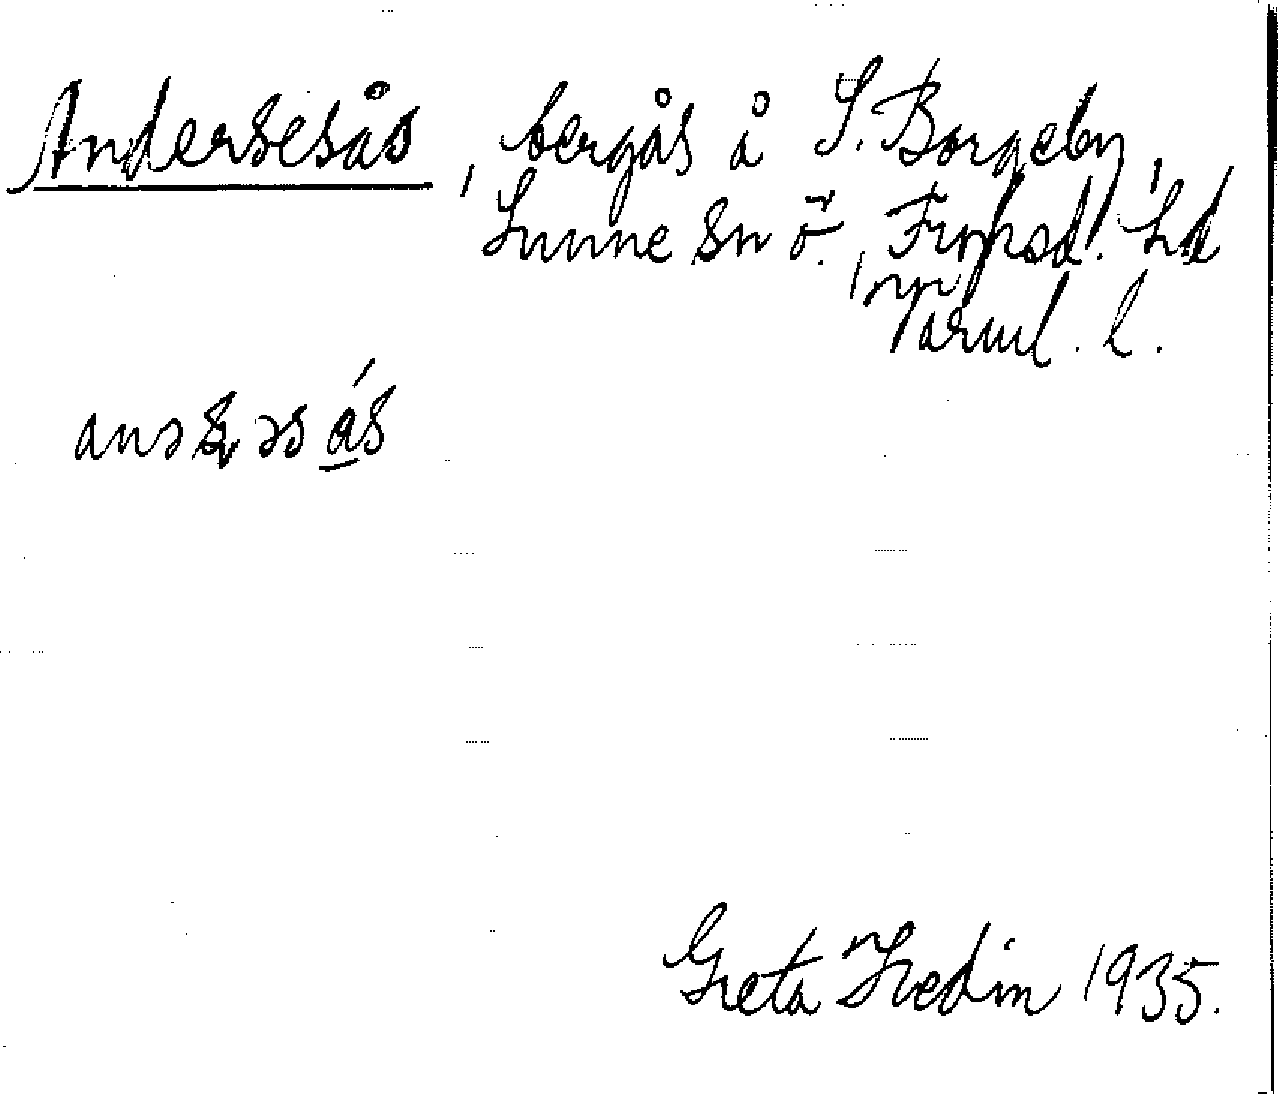 Andersesås, bergås å S. Borgeby,
Sunne sn ö., Fryksd. hd
Värml. l.
Greta Hedin 1935.